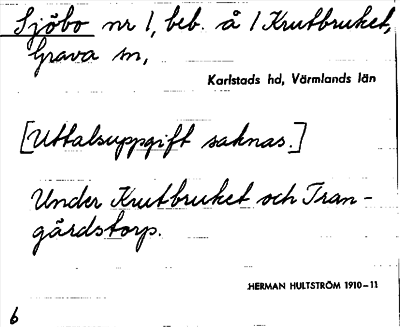 Sjöbo nr 1, beb. å 1 Krutbruket,
Grava sn,
Karlstads hd, Värmlands län
[Uttalsuppgift saknas.]
Under Krutbruket och Tran-
gärdstorp.
HERMAN HULTSTRÖM 1910–11
6